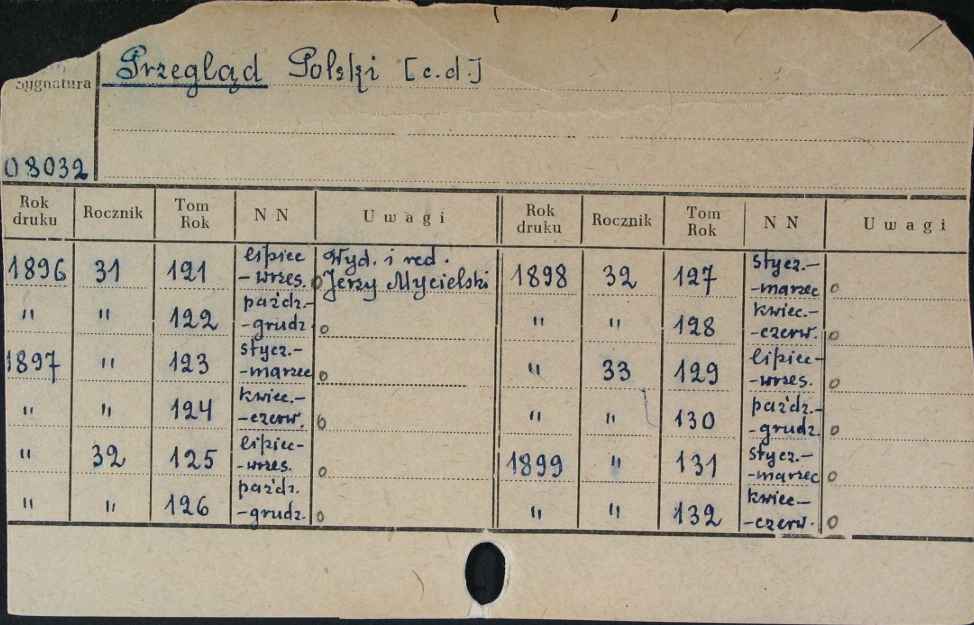 Przegląd Polski [c.d.]
Sygnatura
08032
Rok druku Rocznik Tom Rok N N Uwagi Rok druku Rocznik Tom Rok N N Uwagi
1896 31 121 lipiec -wrzes. o Wyd. i red. Jerzy Mycielski 1898 32 127 stycz.- -marzec o
" " 122 paźdz.- -grudz. o " " 128 kwiec.- -czerw. o
1897 " 123 stycz.- -marzec o " 33 129 lipiec- -wrzes. o
" " 124 kwiec.- -czerw. o " " 130 paźdz.- -grudz. o
" 32 125 lipiec- -wrzes. o 1899 " 131 stycz.- -marzec o
" " 126 paźdz. -grudz. o " " 132 kwiec- -czerw. o